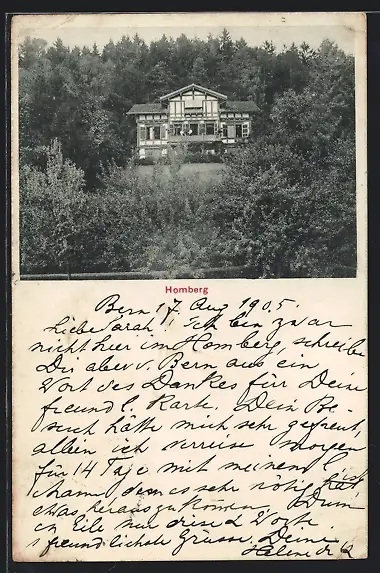 Homberg
Bern 17. Aug 1905.
Liebe Sarah! Ich bin zwar
nicht hier im Homberg, schreibe
Dir aber v. Bern aus ein
Wort des Dankes für Deine
freundl. Karte. Dein Be-
such hätte mich sehr gefreut,
allein ich verreise morgen
für 14 Tage mit meinem l.
dem es sehr nötig hat,
etwas herauszukommen. Drum
in Eile nur diese 2 Worte.
freundlichste Grüsse. Deine
Helene